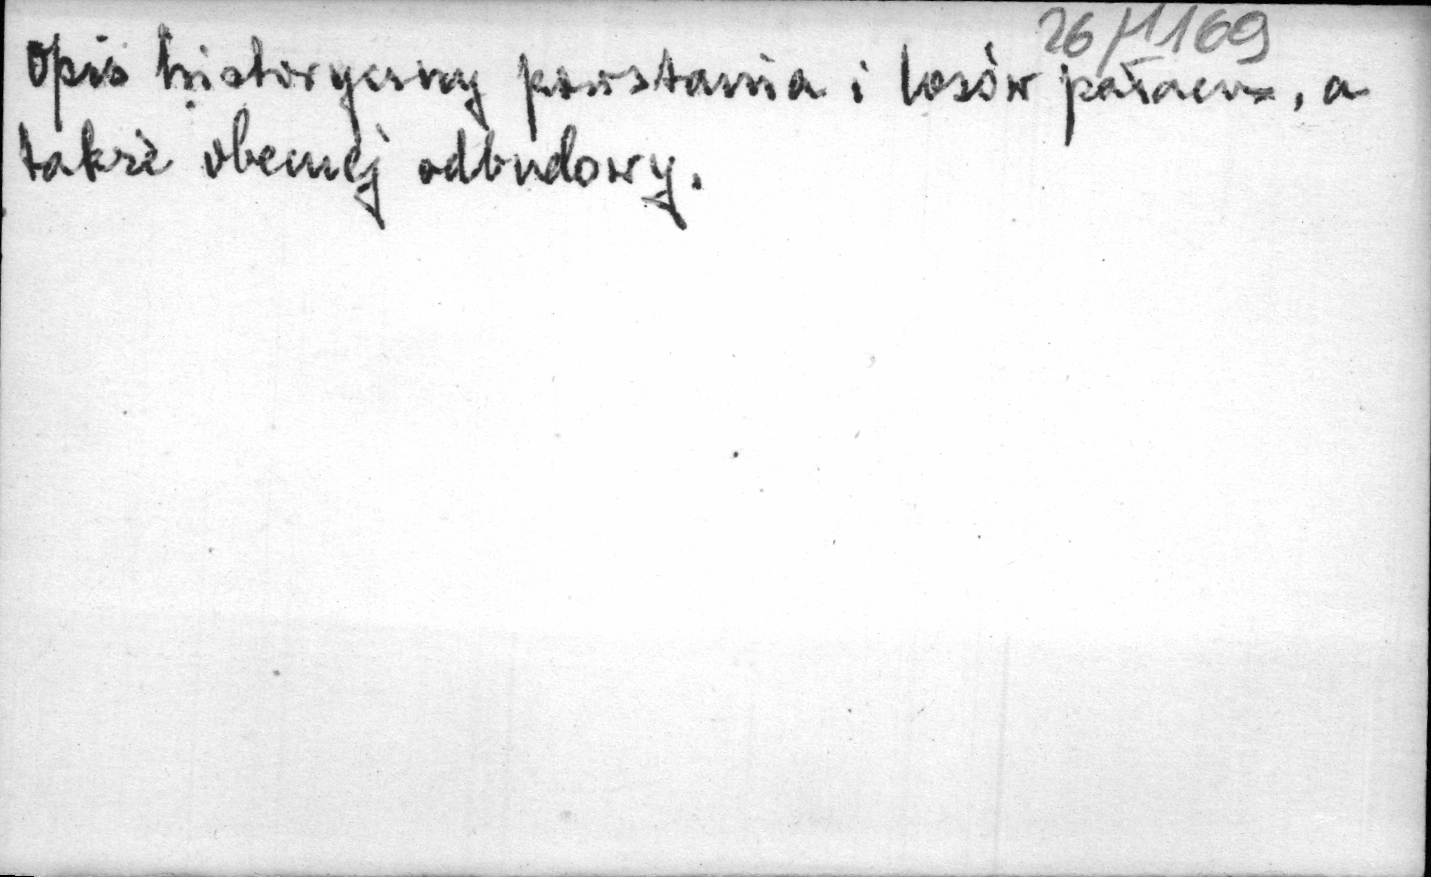 26/1169
Opis historyczny powstania i losów pałacu, a
także obecnej odbudowy.